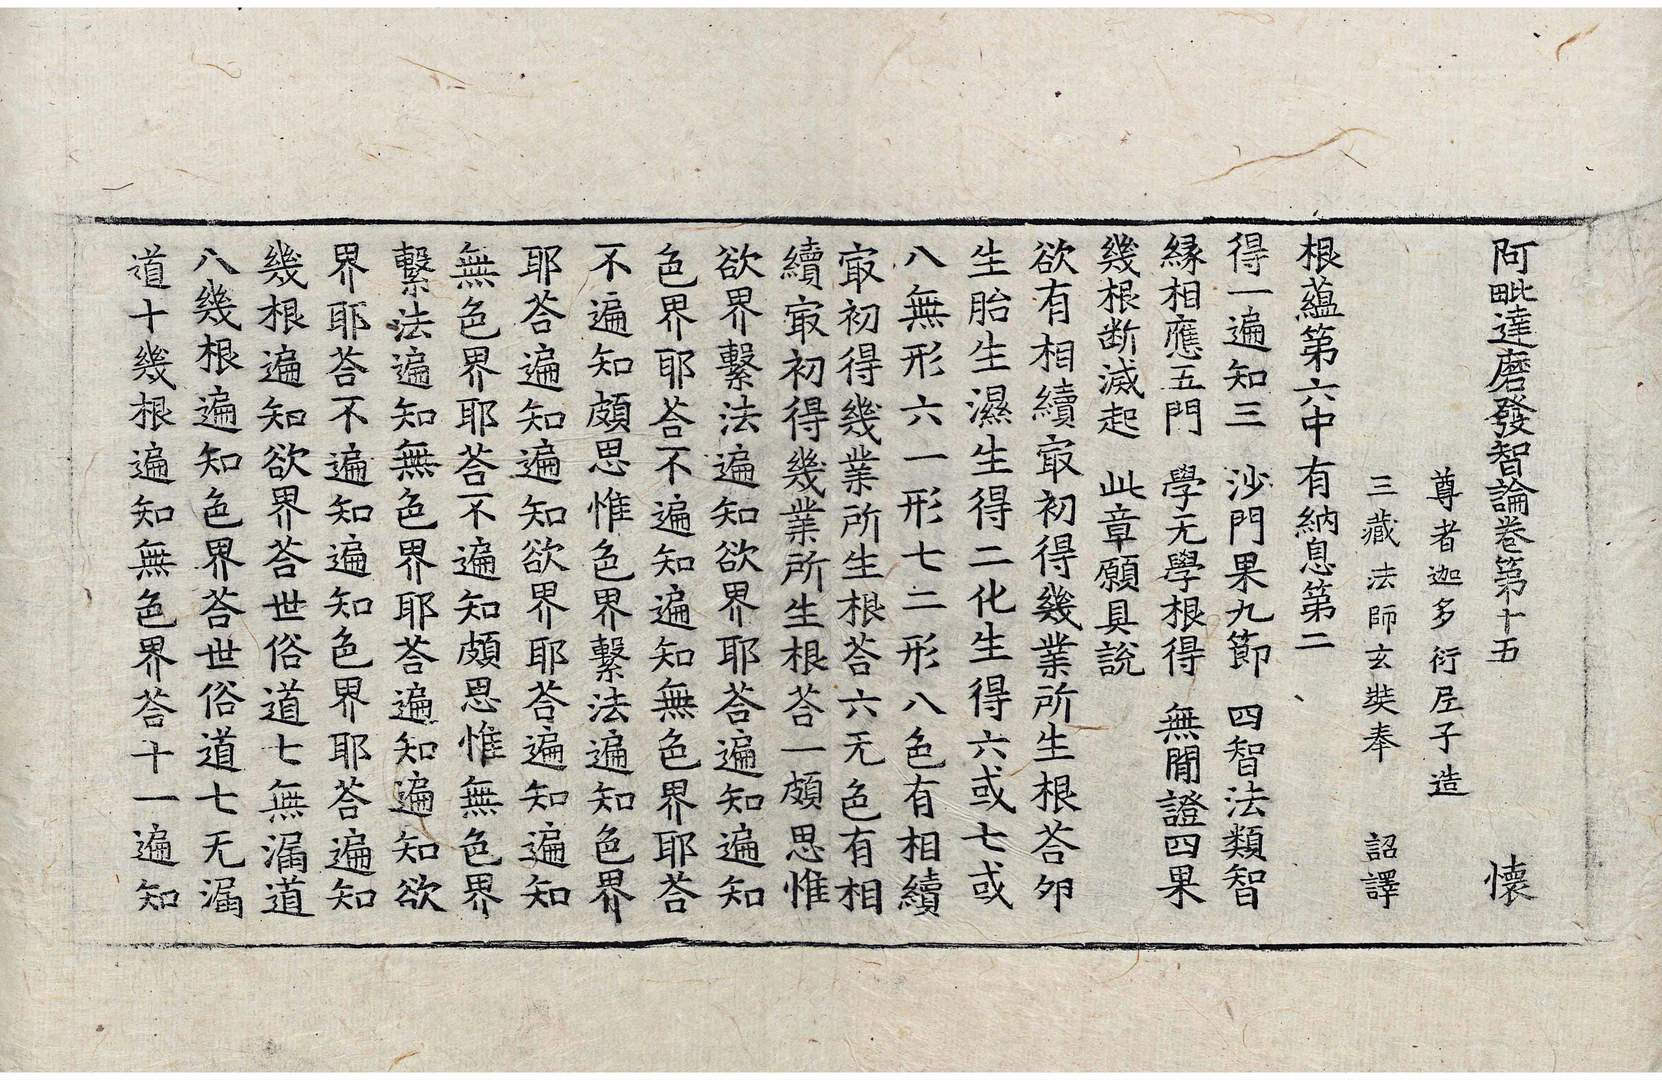 阿毗達磨發智論卷第十五 懷
尊者迦多衍尼子造
三藏法師玄奘奉 詔譯
根蘊第六中有納息第二
得一遍知三 沙門果九節 四智法類智
緣相應五門 學无學根得 無閒證四果
幾根斷滅起 此章願具說
欲有相續㝡初得幾業所生根荅卵
生胎生濕生得二化生得六或七或
八無形六一形七二形八色有相續
㝡初得幾業所生根荅六无色有相
續㝡初得幾業所生根荅一頗思惟
欲界繫法遍知欲界耶荅遍知遍知
色界耶荅不遍知遍知無色界耶荅
不遍知頗思惟色界繫法遍知色界
耶荅遍知遍知欲界耶荅遍知遍知
無色界耶荅不遍知頗思惟無色界
繫法遍知無色界耶荅遍知遍知欲
界耶荅不遍知遍知色界耶荅遍知
幾根遍知欲界荅世俗道七無漏道
八幾根遍知色界荅世俗道七无漏
道十幾根遍知無色界荅十一遍知